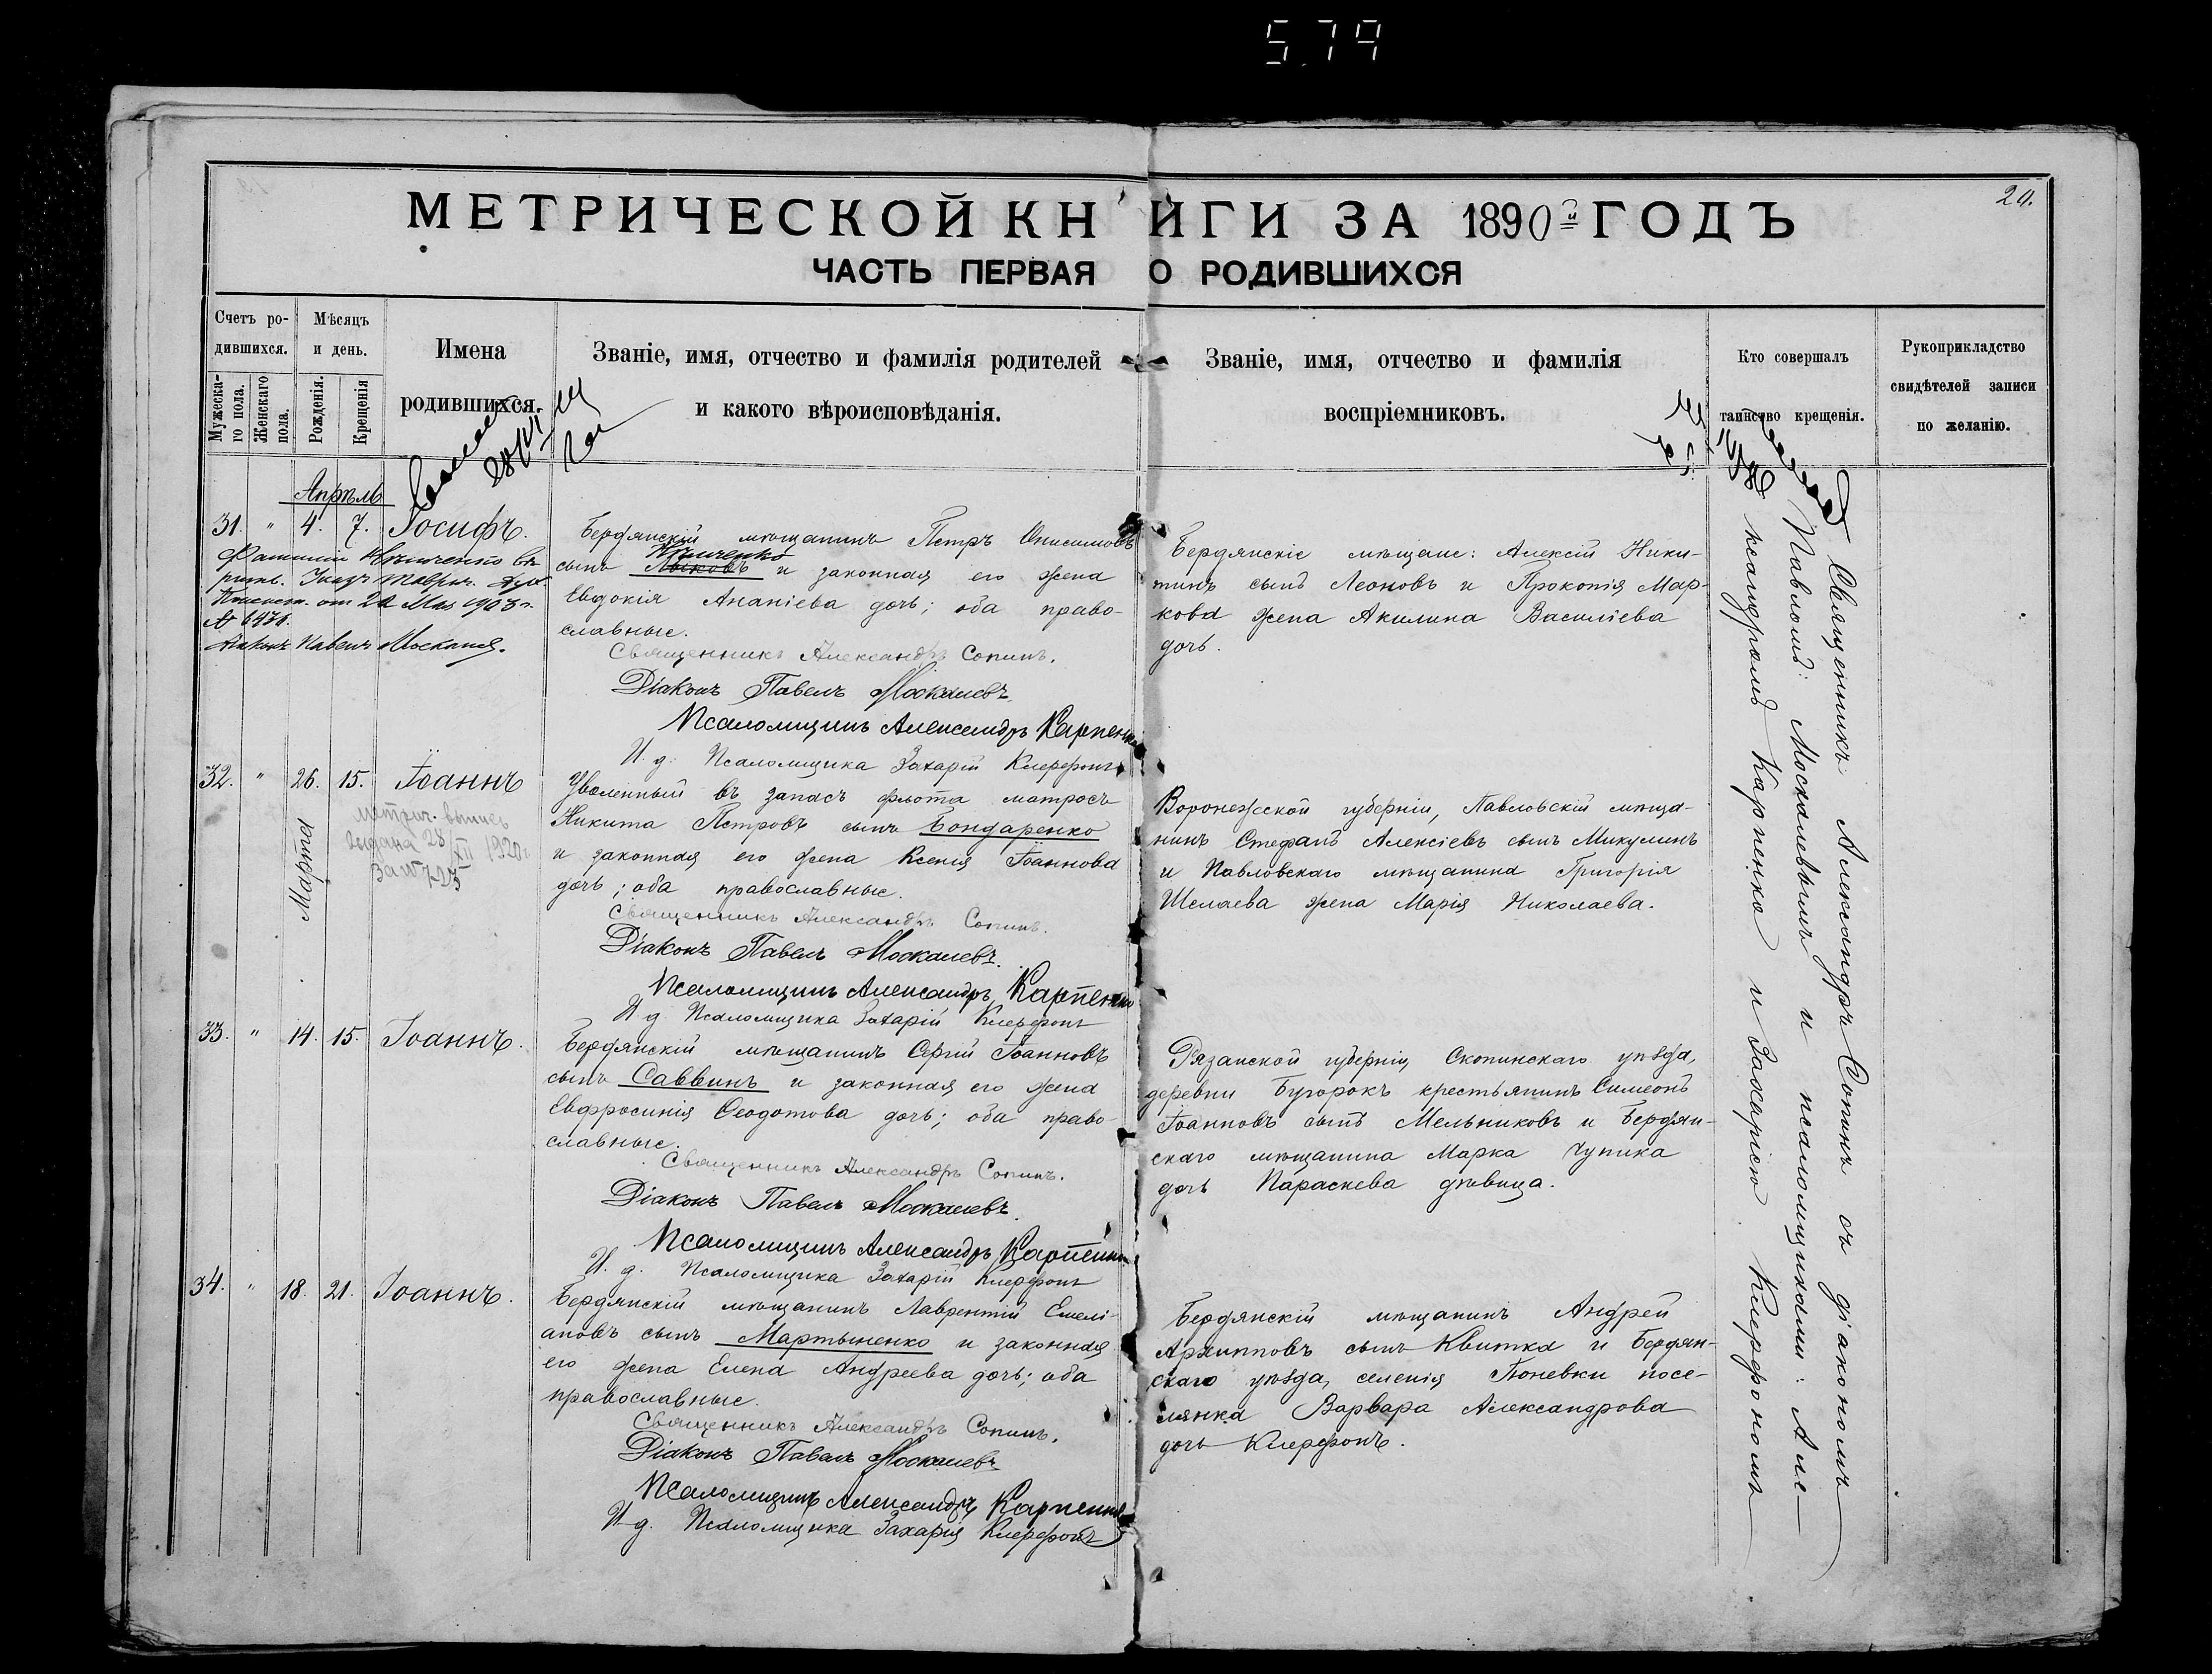 5.79
20.
МЕТРИЧЕСКОЙ КНИГИ ЗА 1890й ГОДЪ
ЧАСТЬ ПЕРВАЯ О РОДИВШИХСЯ
Счетъ ро-
дившихся.
Мужеска-
го пола.
Женскаго
пола.
Мѣсяцъ
и день.
Рожденія.
Крещенія
Имена
родившихся.
Званіе, имя, отчество и фамилія родителей
и какого вѣроисповѣданія.
Званіе, имя, отчество и фамилія
воспріемниковъ.
Кто совершалъ
таинство крещенія.
Рукоприкладство
свидѣтелей записи
по желанію.
Апрѣль
31. " 4. 7. Іосифъ.
Фамилія
от 20 Мая 1903 г.
№ 6431.
Діаконъ Павелъ Москалев.
Бердянскій мѣщанинъ Петръ Онисимовъ
сынъ Лысковъ и законная его жена
Евдокія Ананіева дочь; оба право-
славные.
Священникъ Александръ Сопинъ.
Діаконъ Павелъ Москалевъ.
Псаломщикъ Александръ Карпенко
И. д. Псаломщика Захарій Клерфонъ
Бердянскіе мѣщане: Алексій Ники-
тинъ сынъ Леоновъ и Прокопія Мар-
кова жена Акилина Василіева
дочь.
32. " 26. 15. Іоаннъ
Марта
метрич. выпись
выдана 28/XII 1920 г
За № 725
Уволенный въ запасъ флота матросъ
Никита Петровъ сынъ Бондаренко
и законная его жена Ксенія Іоаннова
дочь; оба православные.
Священникъ Александръ Сопинъ.
Діаконъ Павелъ Москалевъ.
Псаломщикъ Александръ Карпенко
И. д. Псаломщика Захарій Клерфонъ
Воронежской губерніи, Павловскій мѣща-
нинъ Стефанъ Алексіевъ сынъ Микулинъ
и Павловскаго мѣщанина Григорія
Шелаева жена Марія Николаева.
33. " 14. 15. Іоаннъ.
Бердянскій мѣщанинъ Сергій Іоанновъ
сынъ Саввинъ и законная его жена
Евфросинія Ѳеодотова дочь; оба право-
славные.
Священникъ Александръ Сопинъ.
Діаконъ Павелъ Москалевъ.
Псаломщикъ Александръ Карпенко
И. д. Псаломщика Захарій Клерфонъ
Рязанской губерніи, Скопинскаго уѣзда,
деревни Бугорокъ крестьянинъ Симеонъ
Іоанновъ сынъ Мельниковъ и Бердян-
скаго мѣщанина Марка Чупика
дочь Параскева дѣвица.
34. " 18. 21. Іоаннъ.
Бердянскій мѣщанинъ Лаврентій Емелі-
ановъ сынъ Мартыненко и законная
его жена Елена Андреева дочь; оба
православные.
Священникъ Александръ Сопинъ.
Діаконъ Павелъ Москалевъ
Псаломщикъ Александръ Карпенко
И. д. Псаломщика Захарія Клерфонъ
Бердянскій мѣщанинъ Андрей
Архипповъ сынъ Квитка и Бердян-
скаго уѣзда, селенія Гюневки посе-
лянка Варвара Александрова
дочь Клерфонъ.
Священникъ Александръ Сопинъ съ діакономъ
Павломъ Москалевымъ и псаломщиками: Але-
ксандромъ Карпенко и Захаріею Клерфономъ